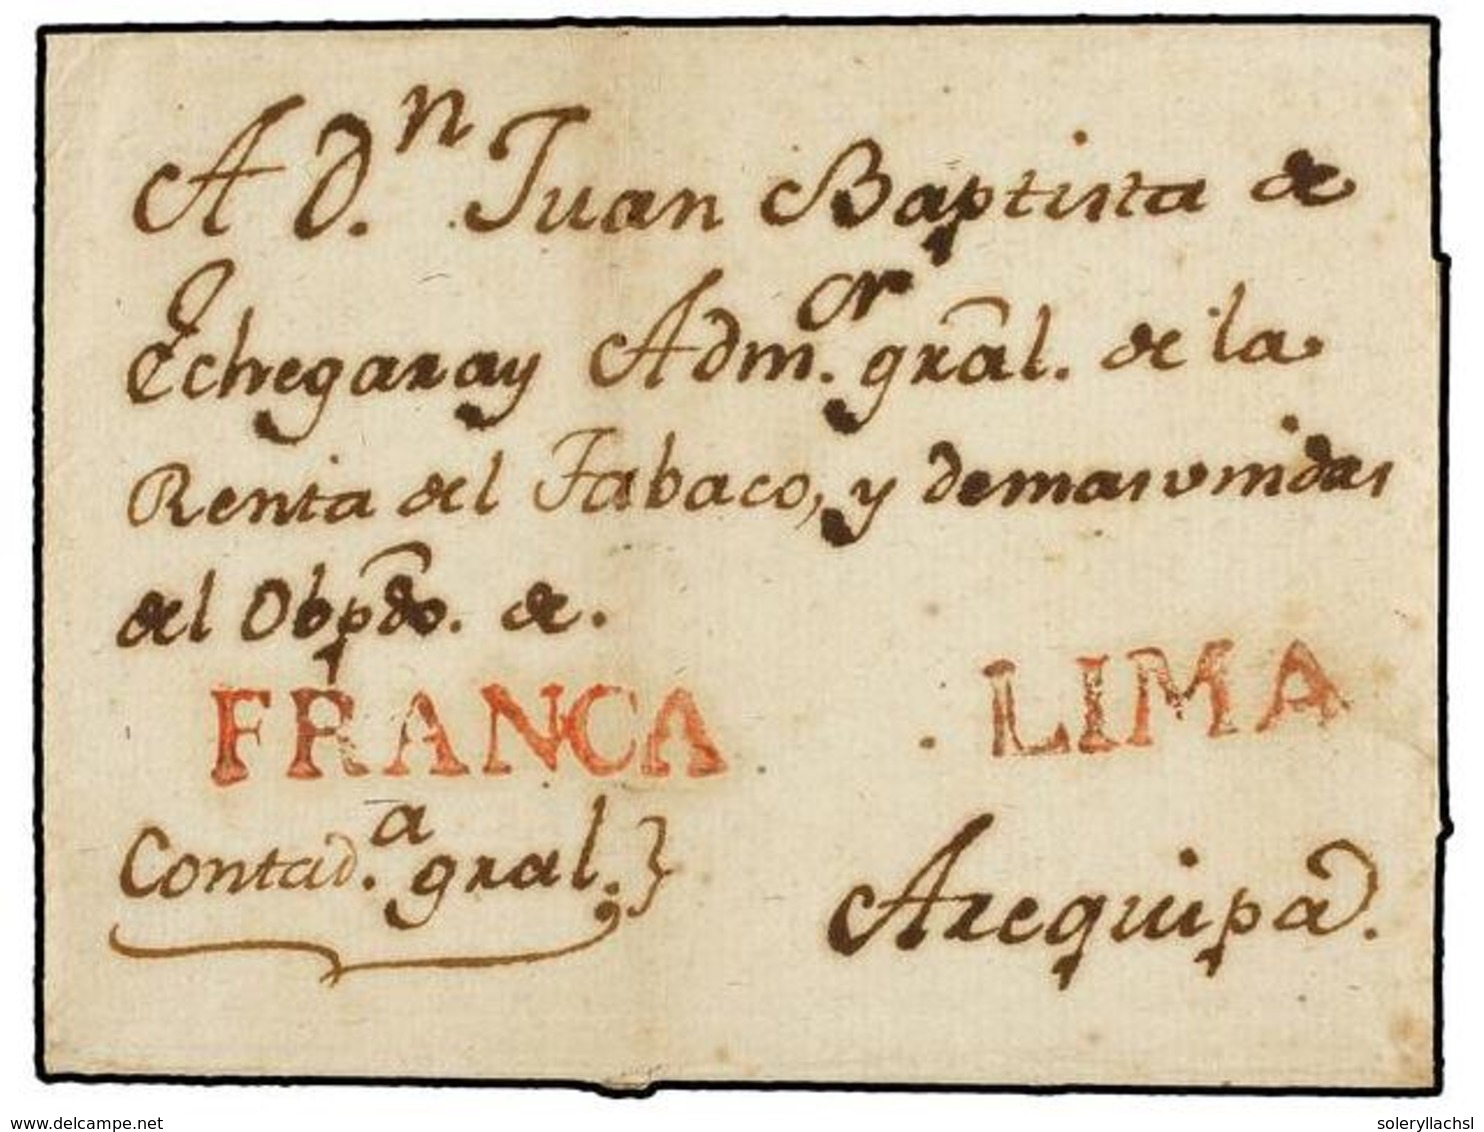 A D.n Juan Baptista de
Echegaray Adm.or gral. de la
Renta del Tabaco, y demas vnidas
del Obpdo. de.
FRANCA LIMA
Contad.a gral.}
Arequipa.
www.delcampe.net
soleryllachsl